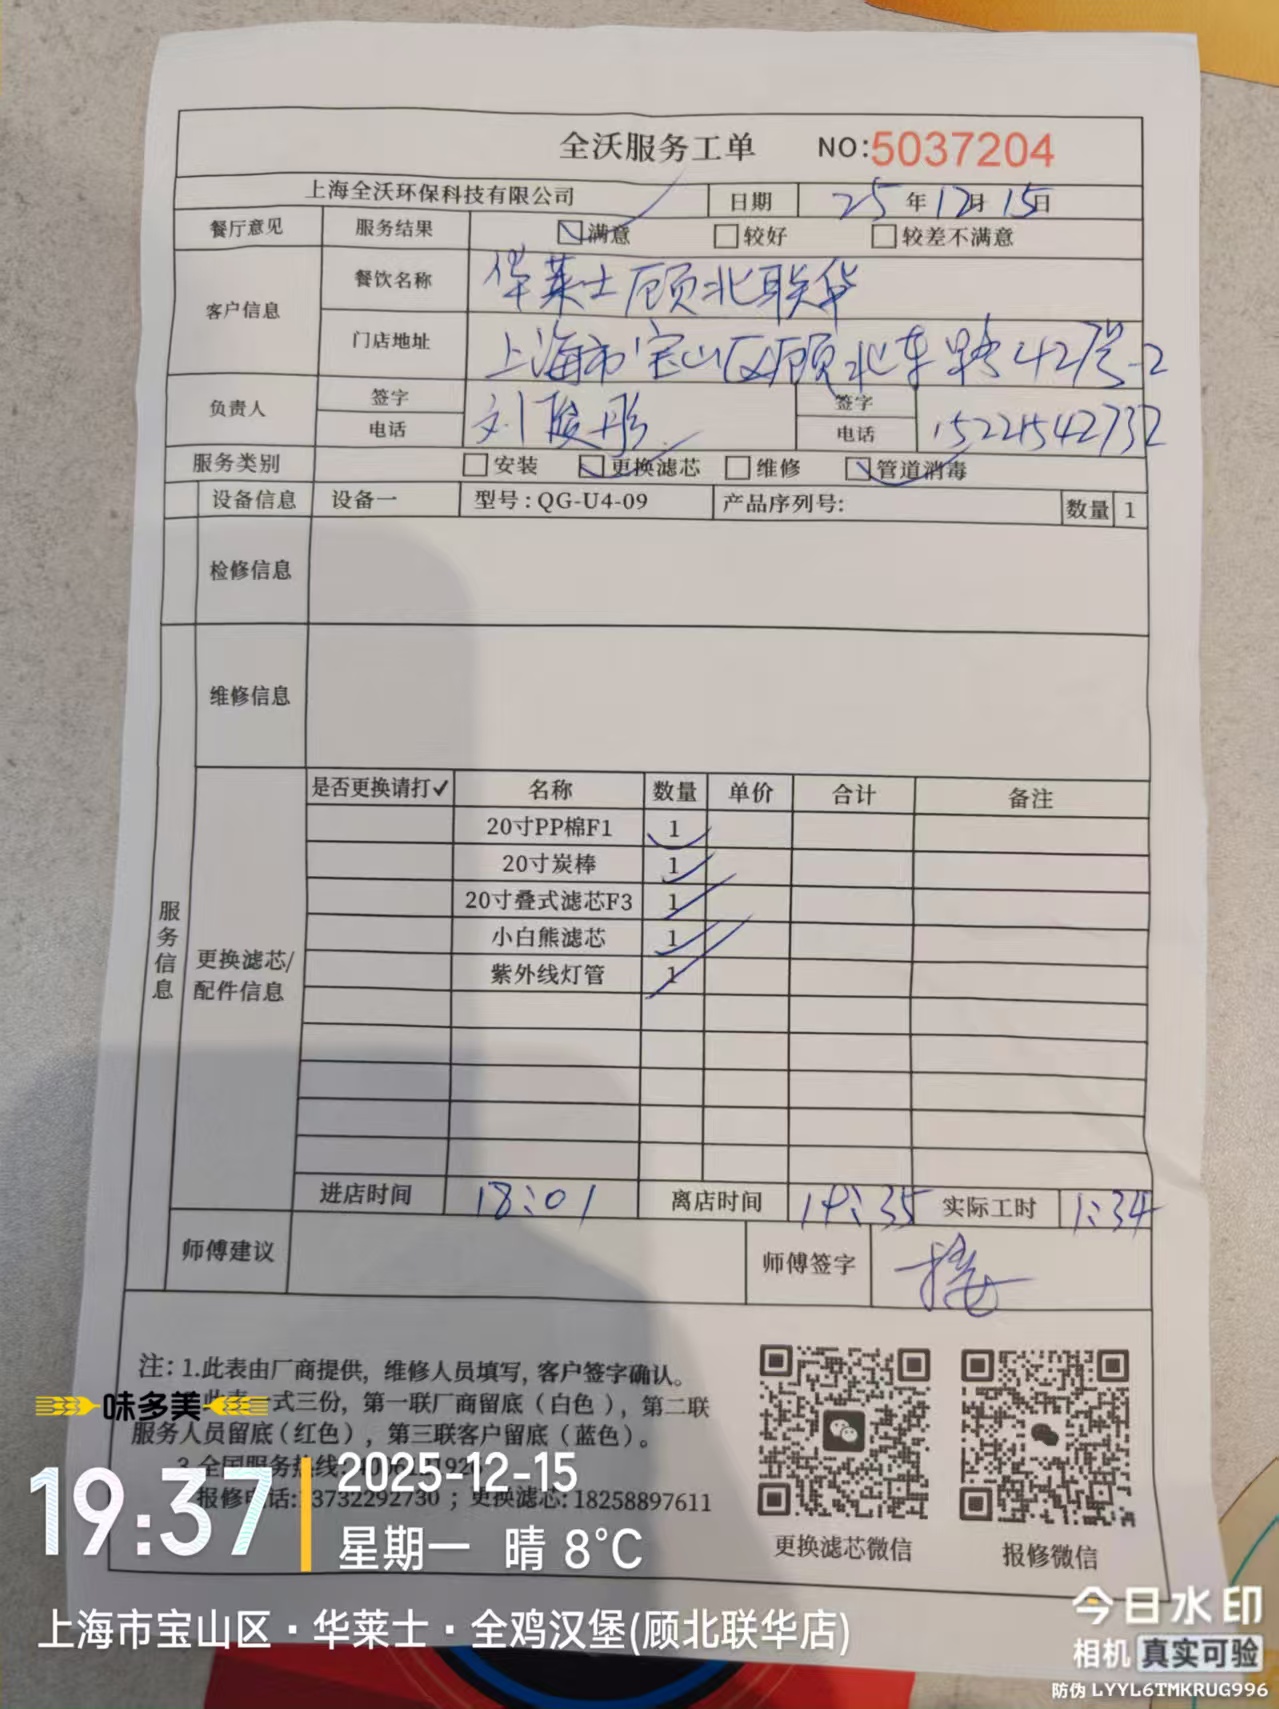 全沃服务工单 NO:5037204
上海全沃环保科技有限公司 日期 25年12月15日
餐厅意见 服务结果 满意 较好 较差不满意
客户信息 餐饮名称 华莱士顾北联华
门店地址 上海市宝山区顾北东路427号-2
负责人 签字 刘陵彤 签字
电话 电话 15221542732
服务类别 安装 更换滤芯 维修 管道消毒
设备信息 设备一 型号:QG-U4-09 产品序列号: 数量 1
检修信息
维修信息
服务信息
更换滤芯/
配件信息
是否更换请打✓ 名称 数量 单价 合计 备注
20寸PP棉F1 1
20寸炭棒 1
20寸叠式滤芯F3 1
小白熊滤芯 1
紫外线灯管 1
进店时间 18:01 离店时间 19:35 实际工时 1:34
师傅建议 师傅签字
注: 1.此表由厂商提供, 维修人员填写, 客户签字确认。
此表一式三份, 第一联厂商留底(白色), 第二联
服务人员留底(红色), 第三联客户留底(蓝色)。
3.全国服务热线:
报修电话:13732292730; 更换滤芯:18258897611
更换滤芯微信
报修微信
味多美
19:37
2025-12-15
星期一 晴 8°C
上海市宝山区·华莱士·全鸡汉堡(顾北联华店)
今日水印
相机 真实可验
防伪 LYYL6TMKRUG996